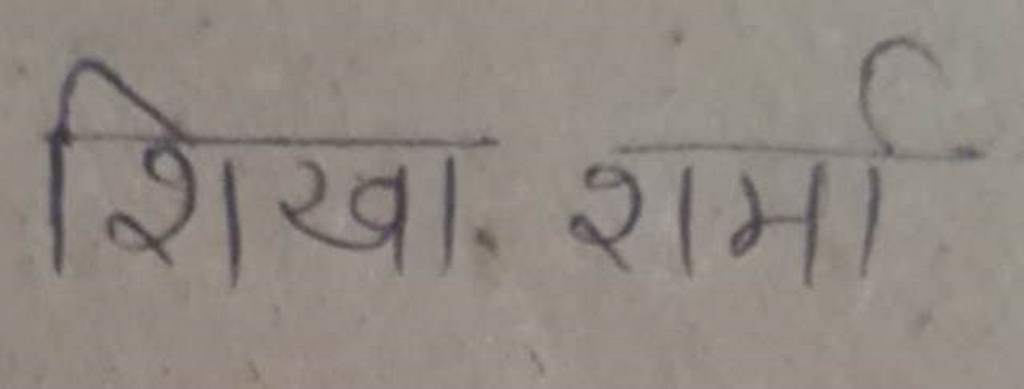 शिखा. शर्मा